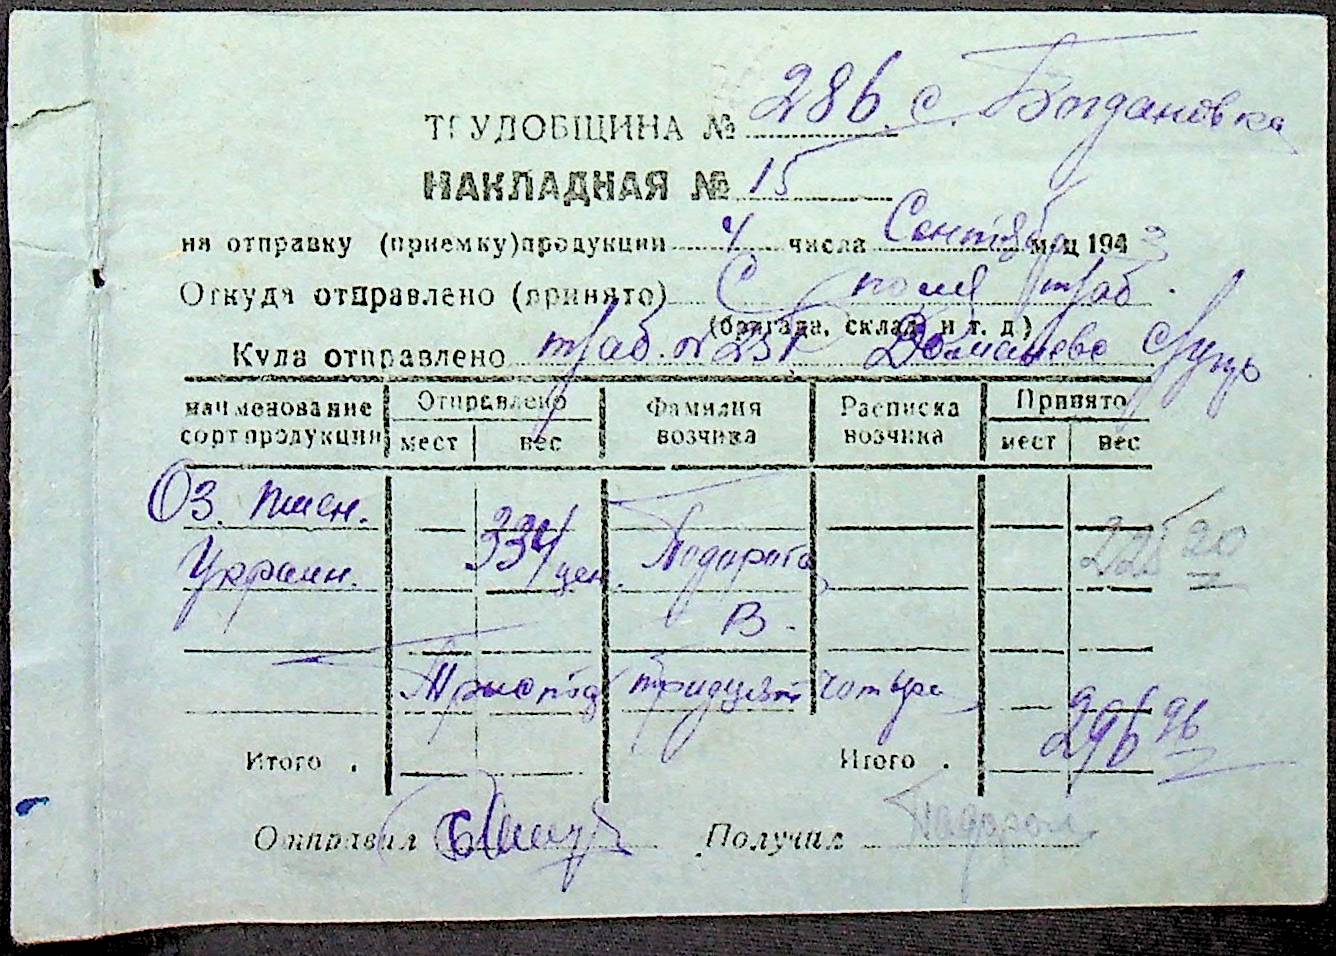 ТРУДОБЩИНА № 286. с. Богдановка
НАКЛАДНАЯ № 15
на отправку (приемку) продукции 4 числа Сентября м-ц 1943
Откуда отправлено (принято) С поля траб.
(бригада, склад и т. д.)
Куда отправлено траб. № 251 Доманево
наименование сорт продукции Отправлено мест вес Фамилия возчика Расписка возчика Принято мест вес
Оз. пшен.
Украин. 334 цен. Подорога 225 20
В.
Триста тридцять чотыре
Итого . Итого . 296 96
Отправил Получил